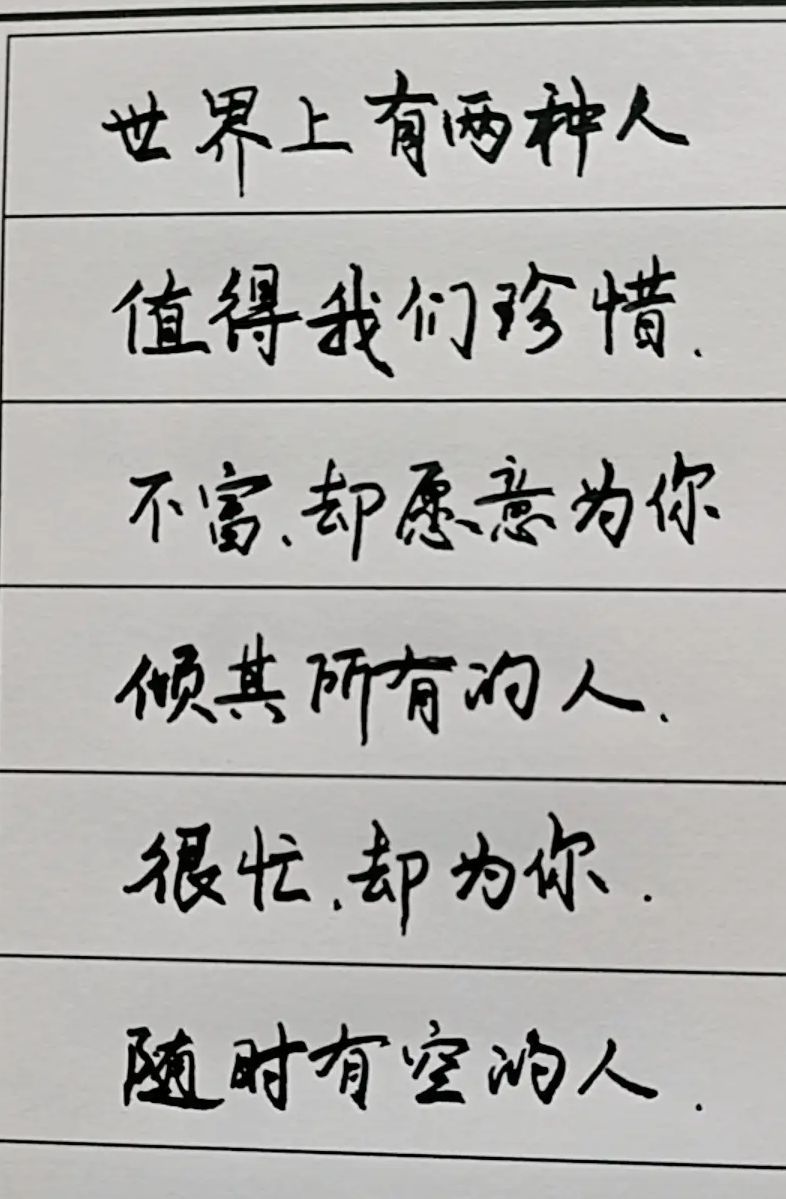 世界上有两种人
值得我们珍惜.
不富、却愿意为你
倾其所有的人.
很忙、却为你.
随时有空的人.